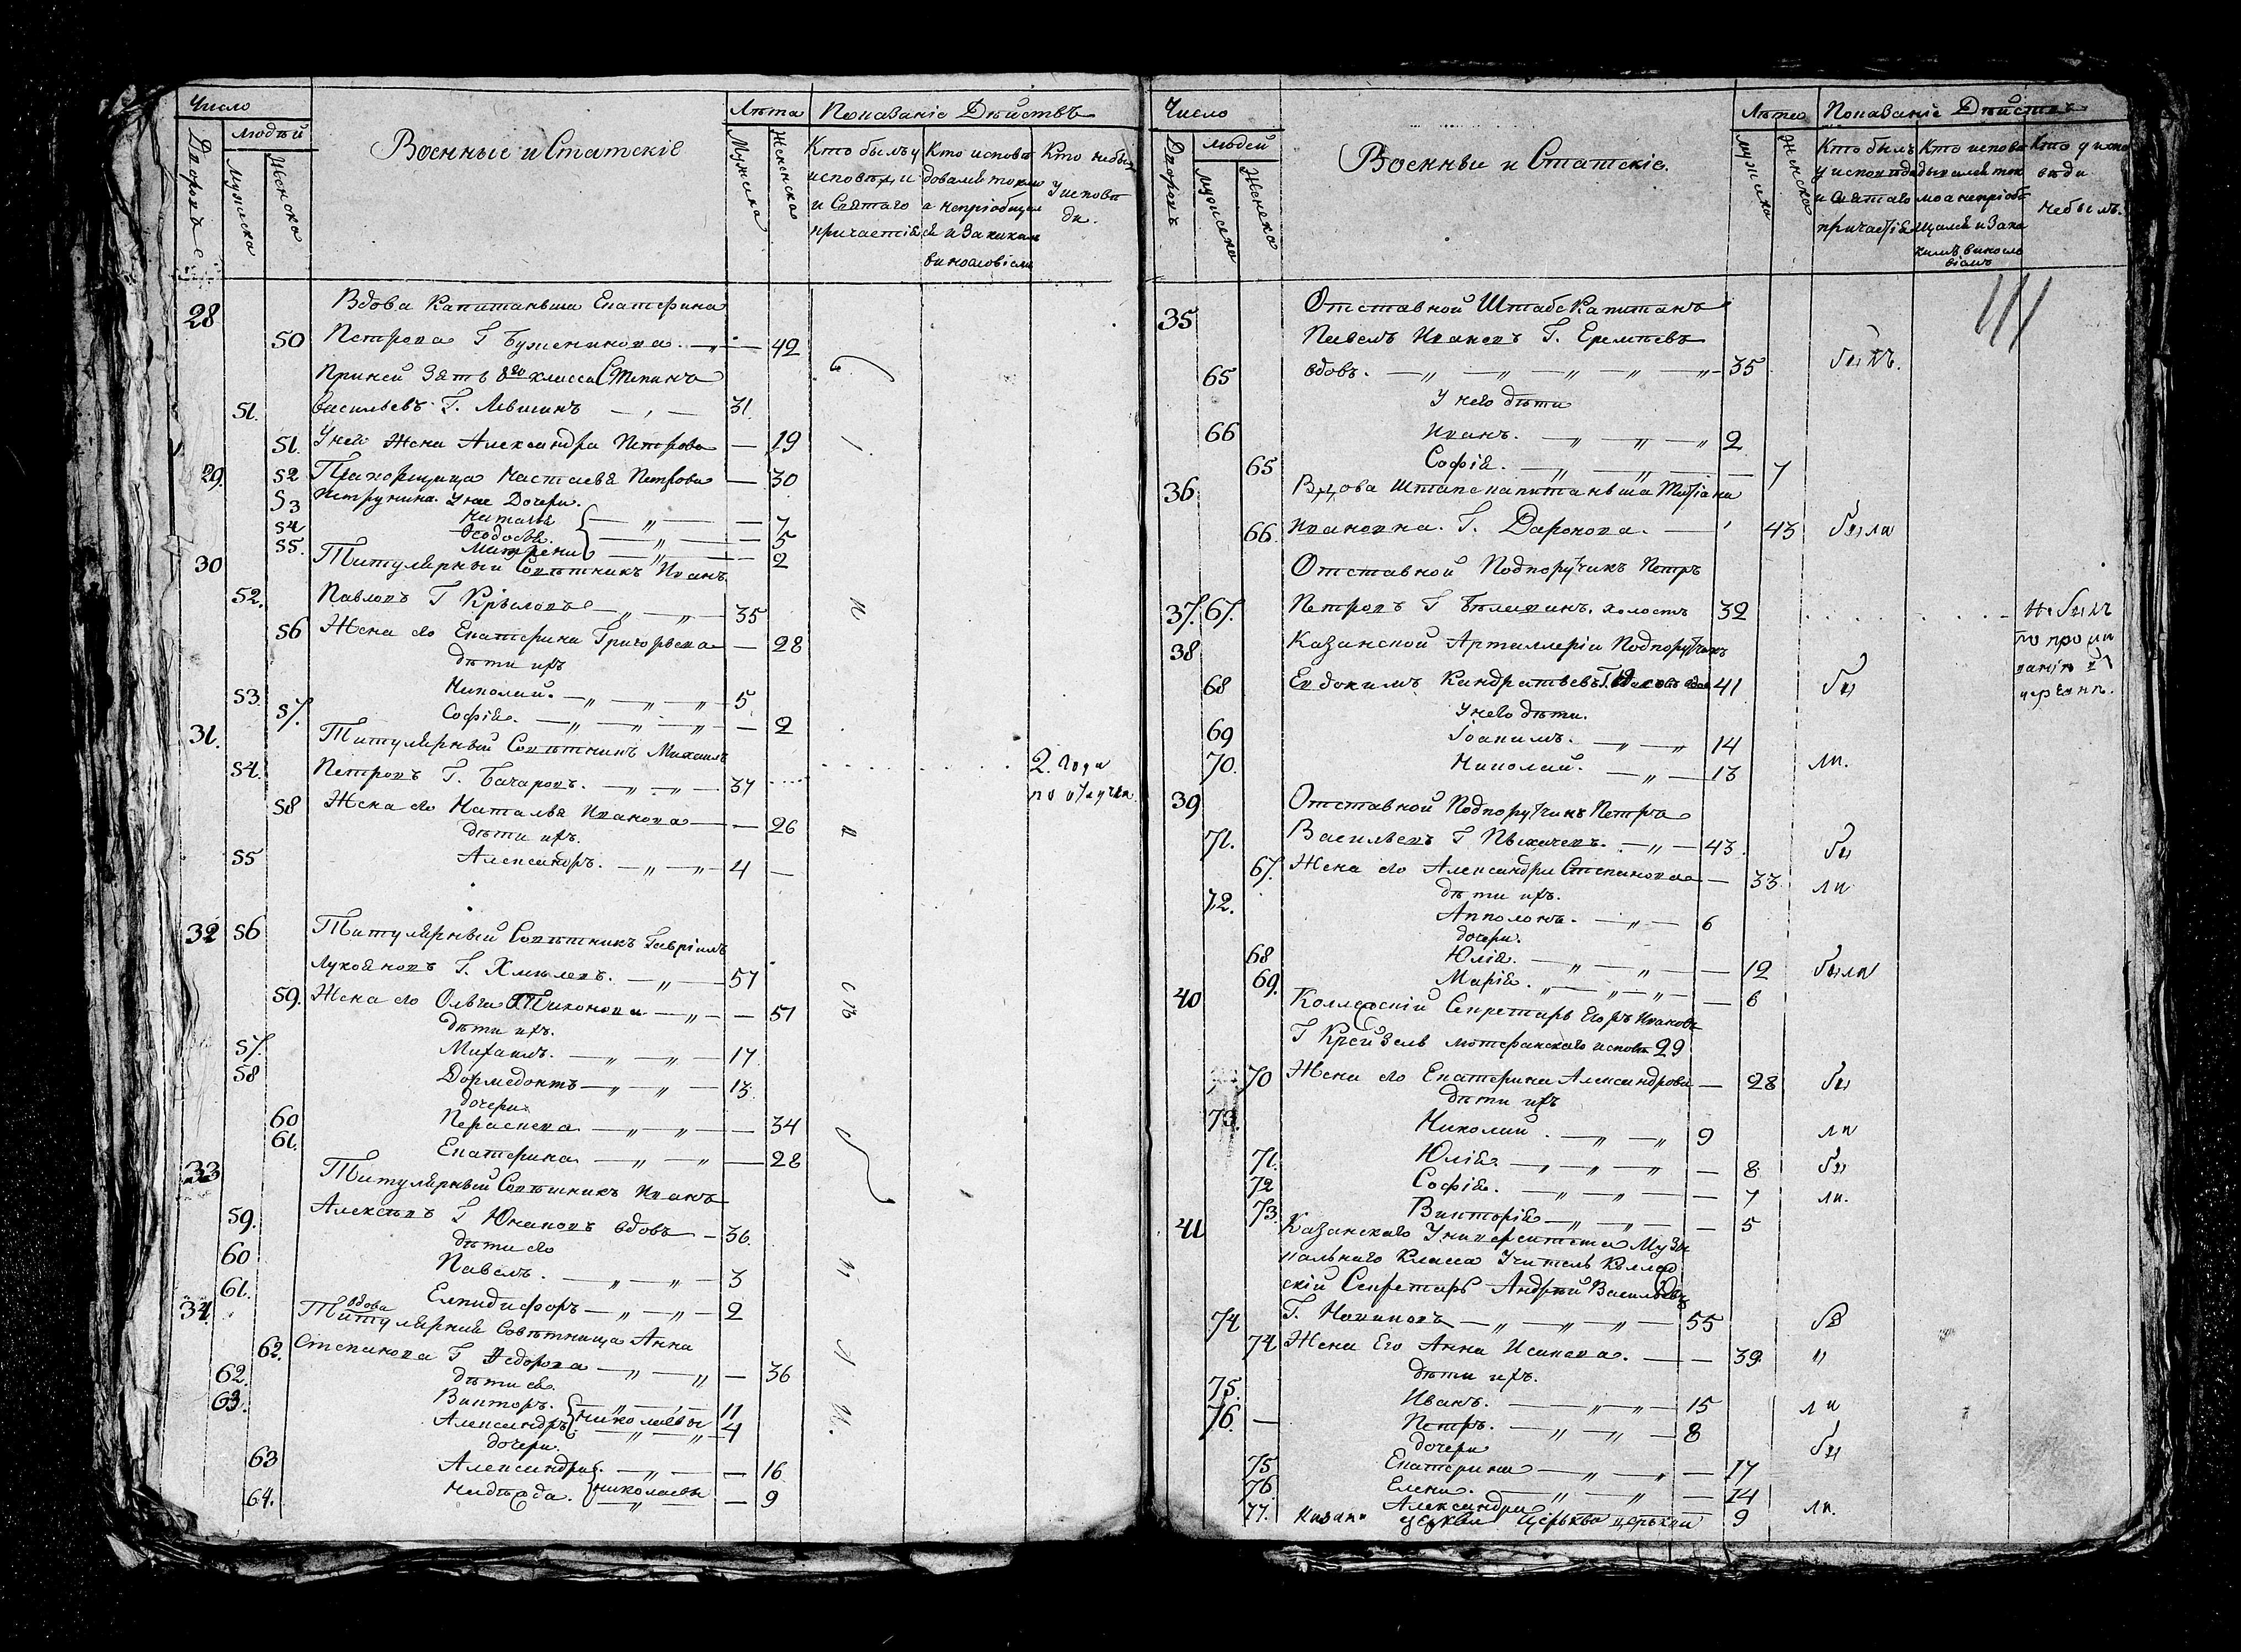 Число
Людѣй
Дворовъ
Мужска
Женска
Военные и Статскіе
Лѣта
Мужска
Женска
Показаніе Дѣйствъ
Кто былъ у
исповѣди и
и Святаго
причастія
Кто исповѣ
довался токмо
а непріобщил
ся и за каким
винословіем
Кто небыл
у исповѣ
ди.
28
Вдова Капитаньша Екатерина
50 Петрова Г Буженинова. 42
При ней Зять 8го класса Степанъ
51. Васильевъ Г. Левшинъ 31
51. У него Жена Александра Петрова 19
29. 52 Прапорщица Настасья Петрова 30
Петрунина. У нее Дочери.
53 Наталья 7
54 Феодосья. 5
55. Матрена 2
30 Титулярный Совѣтникъ Иванъ
52. Павловъ Г Крыловъ 35
56 Жена его Екатерина Григорьева 28
дѣти ихъ
53 Николай. 5
57. Софія. 2
31. Титулярный Совѣтникъ Михаилъ
54. Петровъ Г. Бачаровъ. 37 2. года
по отлучке
58 Жена его Наталья Иванова 26
дѣти ихъ.
55 Александръ. 4
32 56 Титулярный Совѣтникъ Гавріилъ
Лукояновъ Г. Хмелевъ. 57
59. Жена его Ольга Тихонова 57
дѣти ихъ.
57. Михаилъ. 17
58 Дормедонтъ 13
дочери
60 Парасковa 34
61. Екатерина 28
33 Титулярный Совѣтникъ Иванъ
59. Алексѣевъ Г Юнаковъ вдовъ 36.
дѣти его
60 Павелъ. 3
61. Елпидифоръ 2
34. вдова
Титулярная Совѣтница Анна
62. Степанова Г Федорова 36
дѣти ея.
62. Викторъ. 11
63. Александръ Николаевы 4
дочери.
63 Александра. 16
64. Надѣжда. Николаевы 9
Число
Дворовъ
людей
мужска
Женска
Военныи и Статскіе.
Лѣта
мужска
Женска
Показаніе Дѣйствъ
Кто былъ
у исповѣди
и Святаго
причастія
Кто испове
дывался ток
мо а непріоб
щался и за ка
кимъ виносло
віемъ
Кто у испо
вѣди
небылъ.
35 Отставной ШтабсКапитанъ
Павелъ Ивановъ Г. Еремѣевъ
65 вдовъ. 35 былъ.
У него дѣти
66 Иванъ. 2
65 Софія. 7
36 Вдова Штапскапитаньша Татіана
66 Ивановна. Г. Даронова. 43 была
Отставной Подпоручикъ Петръ
37. 67. Петровъ Г Бѣлавинъ. холостъ 32 не былъ
38 Казанской Артиллеріи Подпоручикъ
68 Евдокимъ Кандратьевъ 41 бы
У него дѣти.
69 Іоакимъ. 14
70. Николай. 13 ли.
39 Отставной Подпоручикъ Петръ
71. Васильевъ Г Пыхачевъ. 43 бы
67. Жена его Александра Степанова 33 ли
дѣти ихъ.
72. Апполонъ. 6
дочери.
68 Юлія. 12 были
69. Марія. 6
40 Коллежскій Секретарь Егоръ Ивановъ
Г Крейзель лютеранскаго исповѣ 29
70 Жена его Екатерина Александрова 28 бы
дѣти ихъ
73. Николай. 9 ли
71. Юлія. 8 бы
72 Софія. 7 ли.
73. Викторія 5
41 Казанскаго Университета Музы
кальнаго Класса Учитель Коллеж
скій Секретарь Андрей Васильевъ
74 Г. Новиковъ 55 бы
74 Жена Его Анна Исакова. 39.
дѣти ихъ.
75. Иванъ. 15 ли
76. Петръ. 8
дочери бы
75 Екатерина 17
76 Елена. 14
77. Александра 9 ли.
церкви Церьква церькви